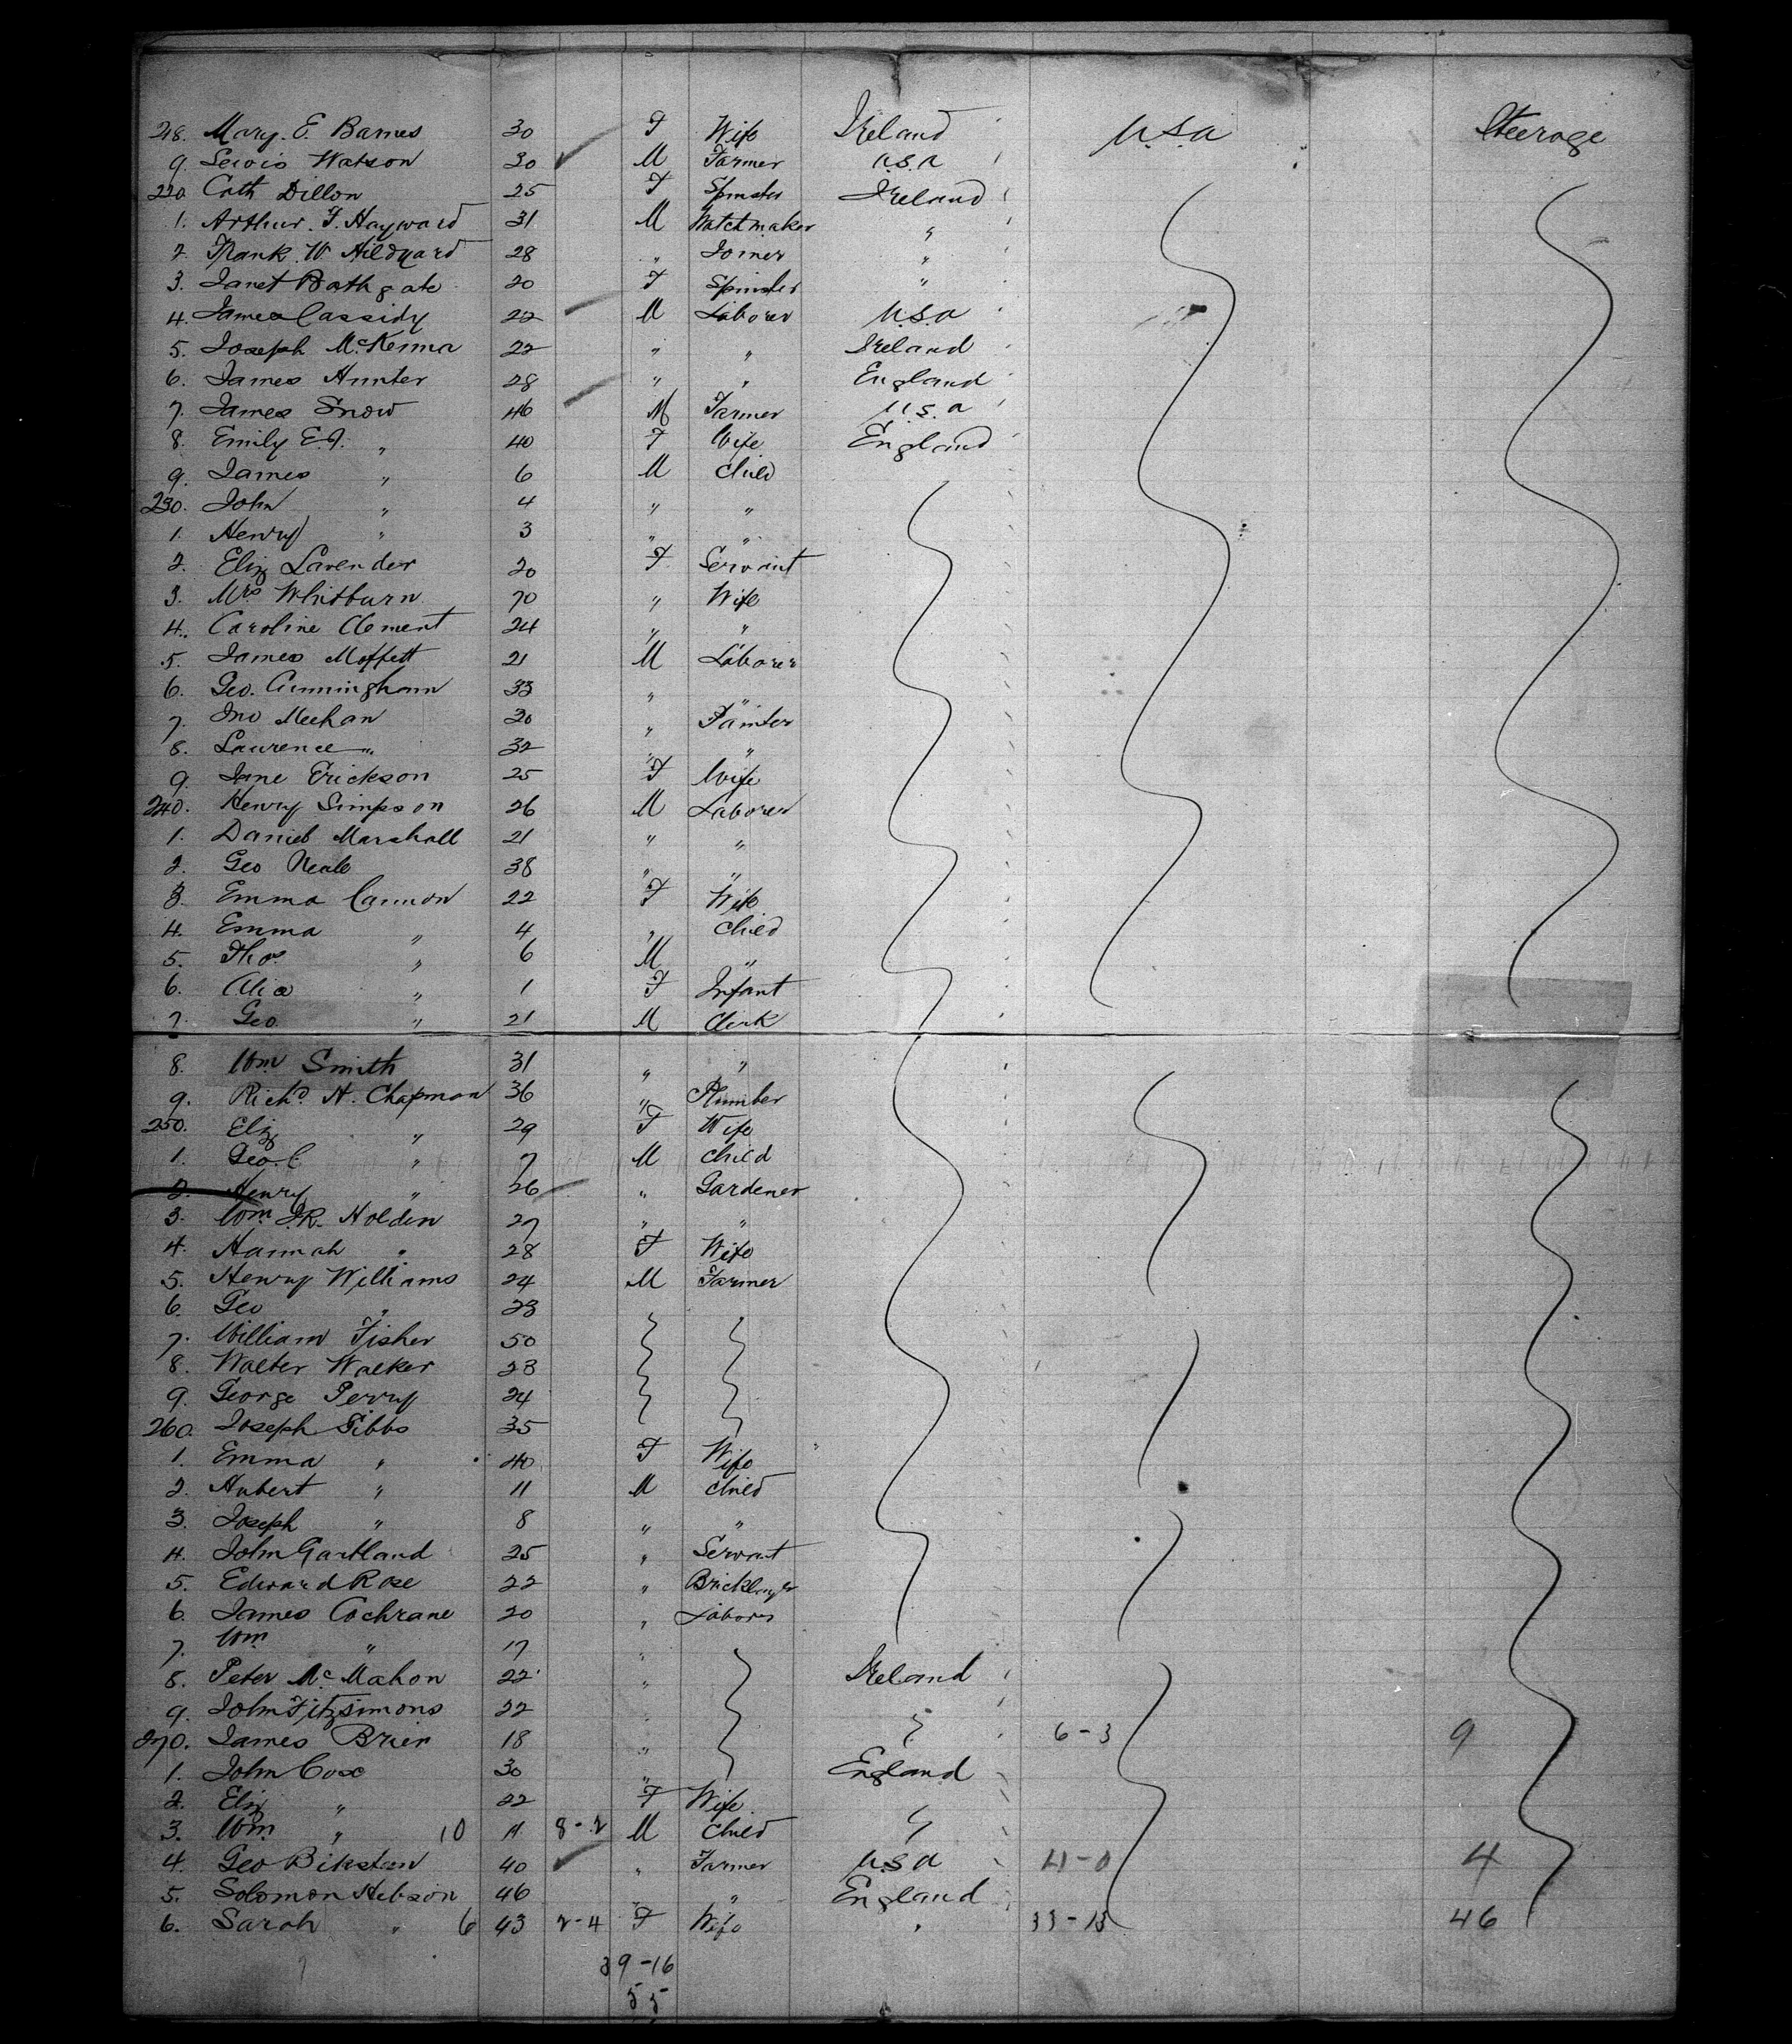 218. Mary. E. Barnes 30 F Wife Ireland U.S.A Steerage
9. Lewis Watson 30 M Farmer U.S.A
220 Cath Dillon 25 F Spinster Ireland
1. Arthur. F. Hayward 31 M Watchmaker "
2. Frank. W Hildyard 28 " Joiner "
3. Janet Bathgate 20 F Spinster "
4. James Cassidy 22 M Laborer U.S.A
5. Joseph McKenna 22 " " Ireland
6. James Hunter 28 " " England
7. James Snow 46 M Farmer U.S.A
8. Emily E.J. " 40 F Wife England
9. James " 6 M Child
230. John " 4 " "
1. Henry " 3 " "
2. Eliz Lavender 20 F Servant
3. Mrs Whitburn 70 " Wife
4. Caroline Clement 24 " "
5. James Moffett 21 M Laborer
6. Geo. Cunningham 33 " "
7. Jno Meehan 30 " Painter
8. Laurence " 32 " "
9. Jane Erickson 25 F Wife
240. Henry Simpson 26 M Laborer
1. Daniel Marshall 21 " "
2. Geo Neale 38 " "
3. Emma Cannon 22 F Wife
4. Emma " 4 " Child
5. Thos " 6 M "
6. Alice " 1 F Infant
7. Geo. " 21 M Clerk
8. Wm Smith 31 " "
9. Richd. H. Chapman 36 " Plumber
250. Eliz " 29 F Wife
1. Geo. C. " 7 M Child
2. Henry " 26 " Gardener
3. Wm. J.R. Holden 27 " "
4. Hannah " 28 F Wife
5. Henry Williams 24 M Farmer
6. Geo " 23
7. William Fisher 50
8. Walter Walker 23
9. George Perry 24
260. Joseph Gibbs 35
1. Emma " 40 F Wife
2. Hubert " 11 M Child
3. Joseph " 8 " "
4. John Gartland 25 " Servant
5. Edward Rose 22 " Bricklayer
6. James Cochrane 20 " Laborer
7. Wm " 17 "
8. Peter McMahon 22 " Ireland
9. John Fitzsimons 22 "
270. James Brier 18 " 6-3 9
1. John Cox 30 " England
2. Eliz " 22 F Wife
3. Wm. " 10 11 8-2 M Child
4. Geo 40 " Farmer U.S.A 4-0 4
5. Solomon Hebson 46 " " England
6. Sarah " 6 43 2-4 F Wife " 33-13 46
39-16
55